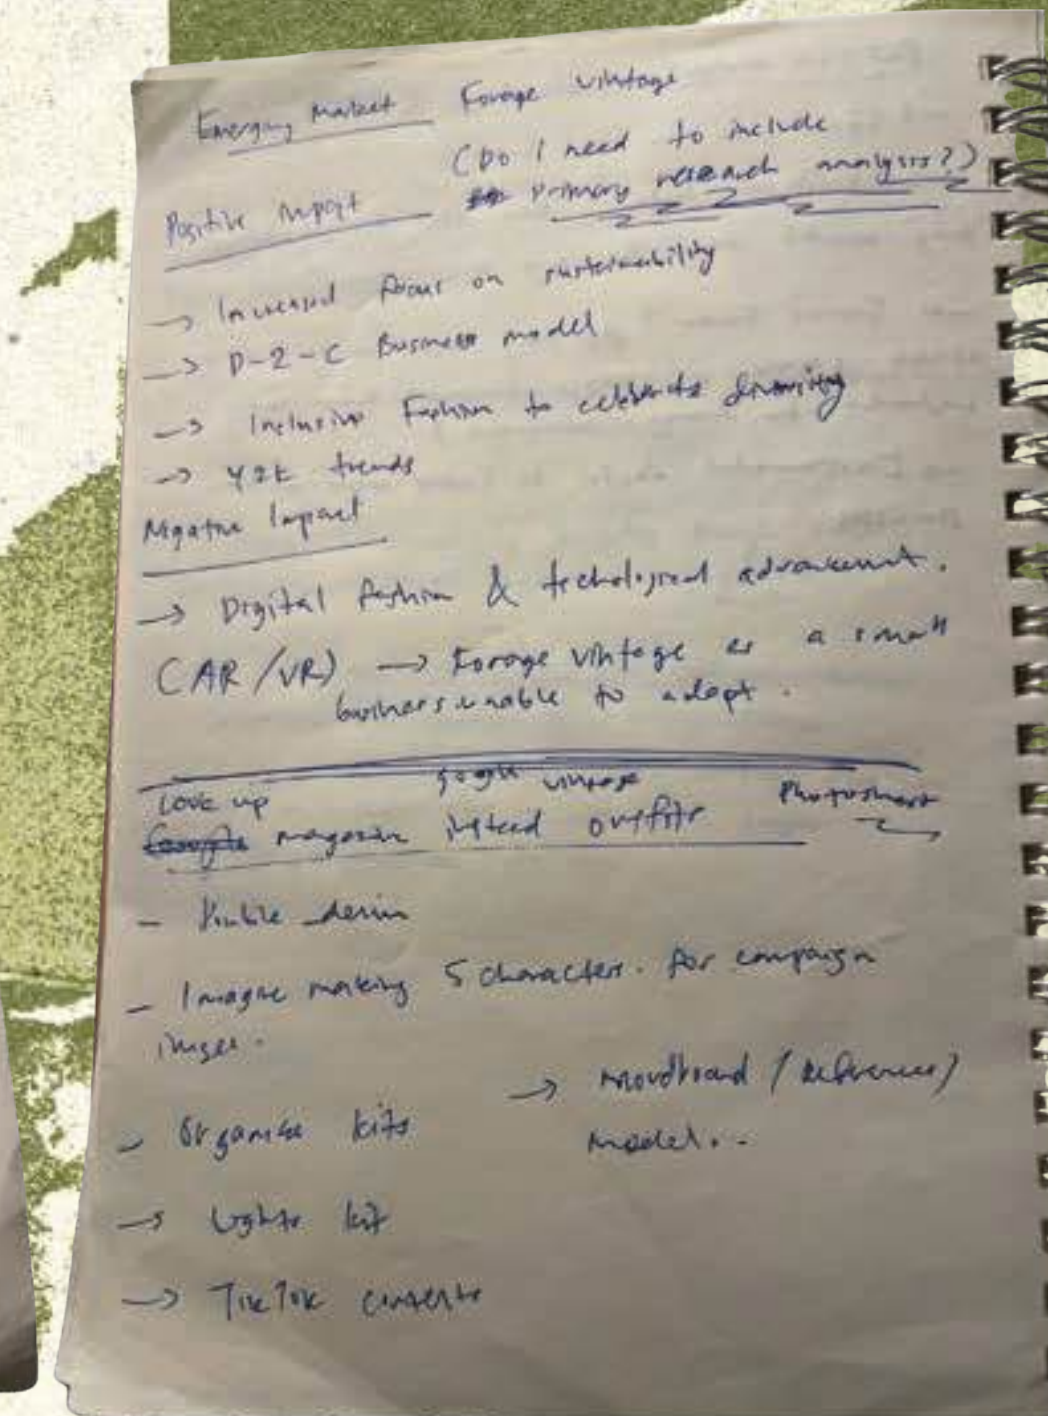 Emerging Market Forage Vintage
(Do I need to include
Primary research analysis?)
Positive Impact
→ Increased focus on sustainability
→ D-2-C Business model
→ Inclusive Fashion to celebrate diversity
→ Y2K trends
Negative Impact
→ Digital fashion & techological advancement.
(AR/VR) → Forage vintage as a small
business unable to adopt.
vintage
Love up
magazine outfits
Photoshoot
- Double denim
- Imagine making 5 characters. for campaign
images.
- Organise kits
→ Moodboard / References)
Model..
→ Lights kit
→ TikTok